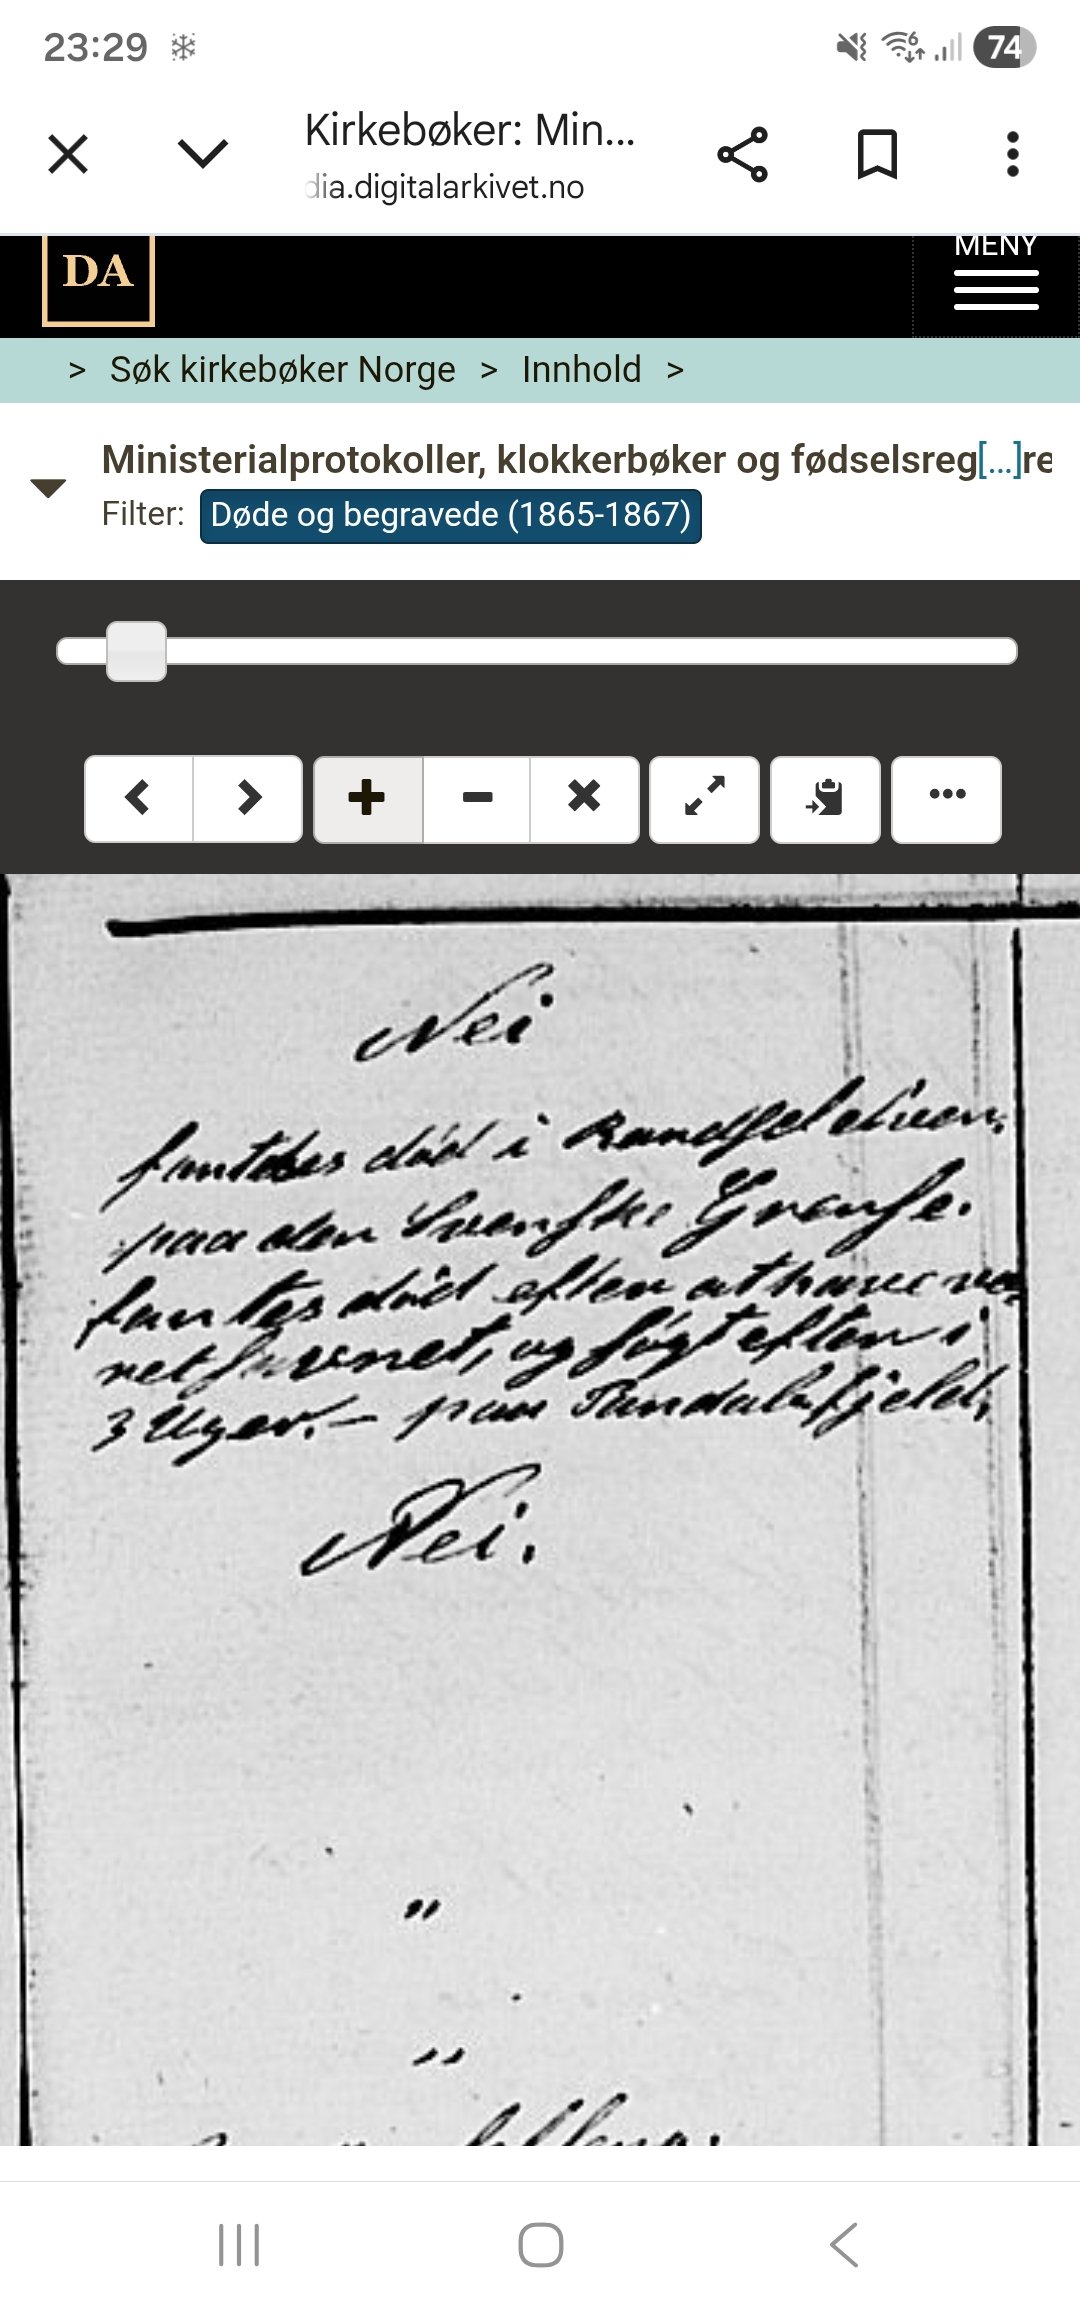 23:29
74
Kirkebøker: Min...
dia.digitalarkivet.no
DA
MENY
> Søk kirkebøker Norge > Innhold >
Ministerialprotokoller, klokkerbøker og fødselsreg[...]re
Filter: Døde og begravede (1865-1867)
Nei
fantdes død i
paa den Svenske Grense.
fantes død efter at have væ
ret savnet, og søgt efter i
3 Uger. – paa
Nei.
"
"